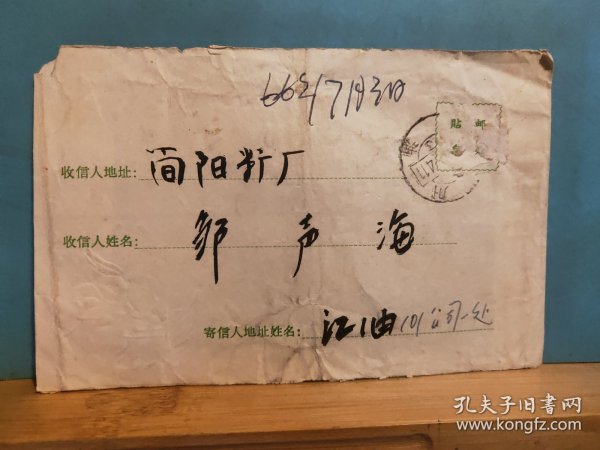 66年7月3日
貼 邮
收信人地址: 简阳桥厂
收信人姓名: 邹声海
寄信人地址姓名: 江油101公司一处
孔夫子旧书网
www.kongfz.com